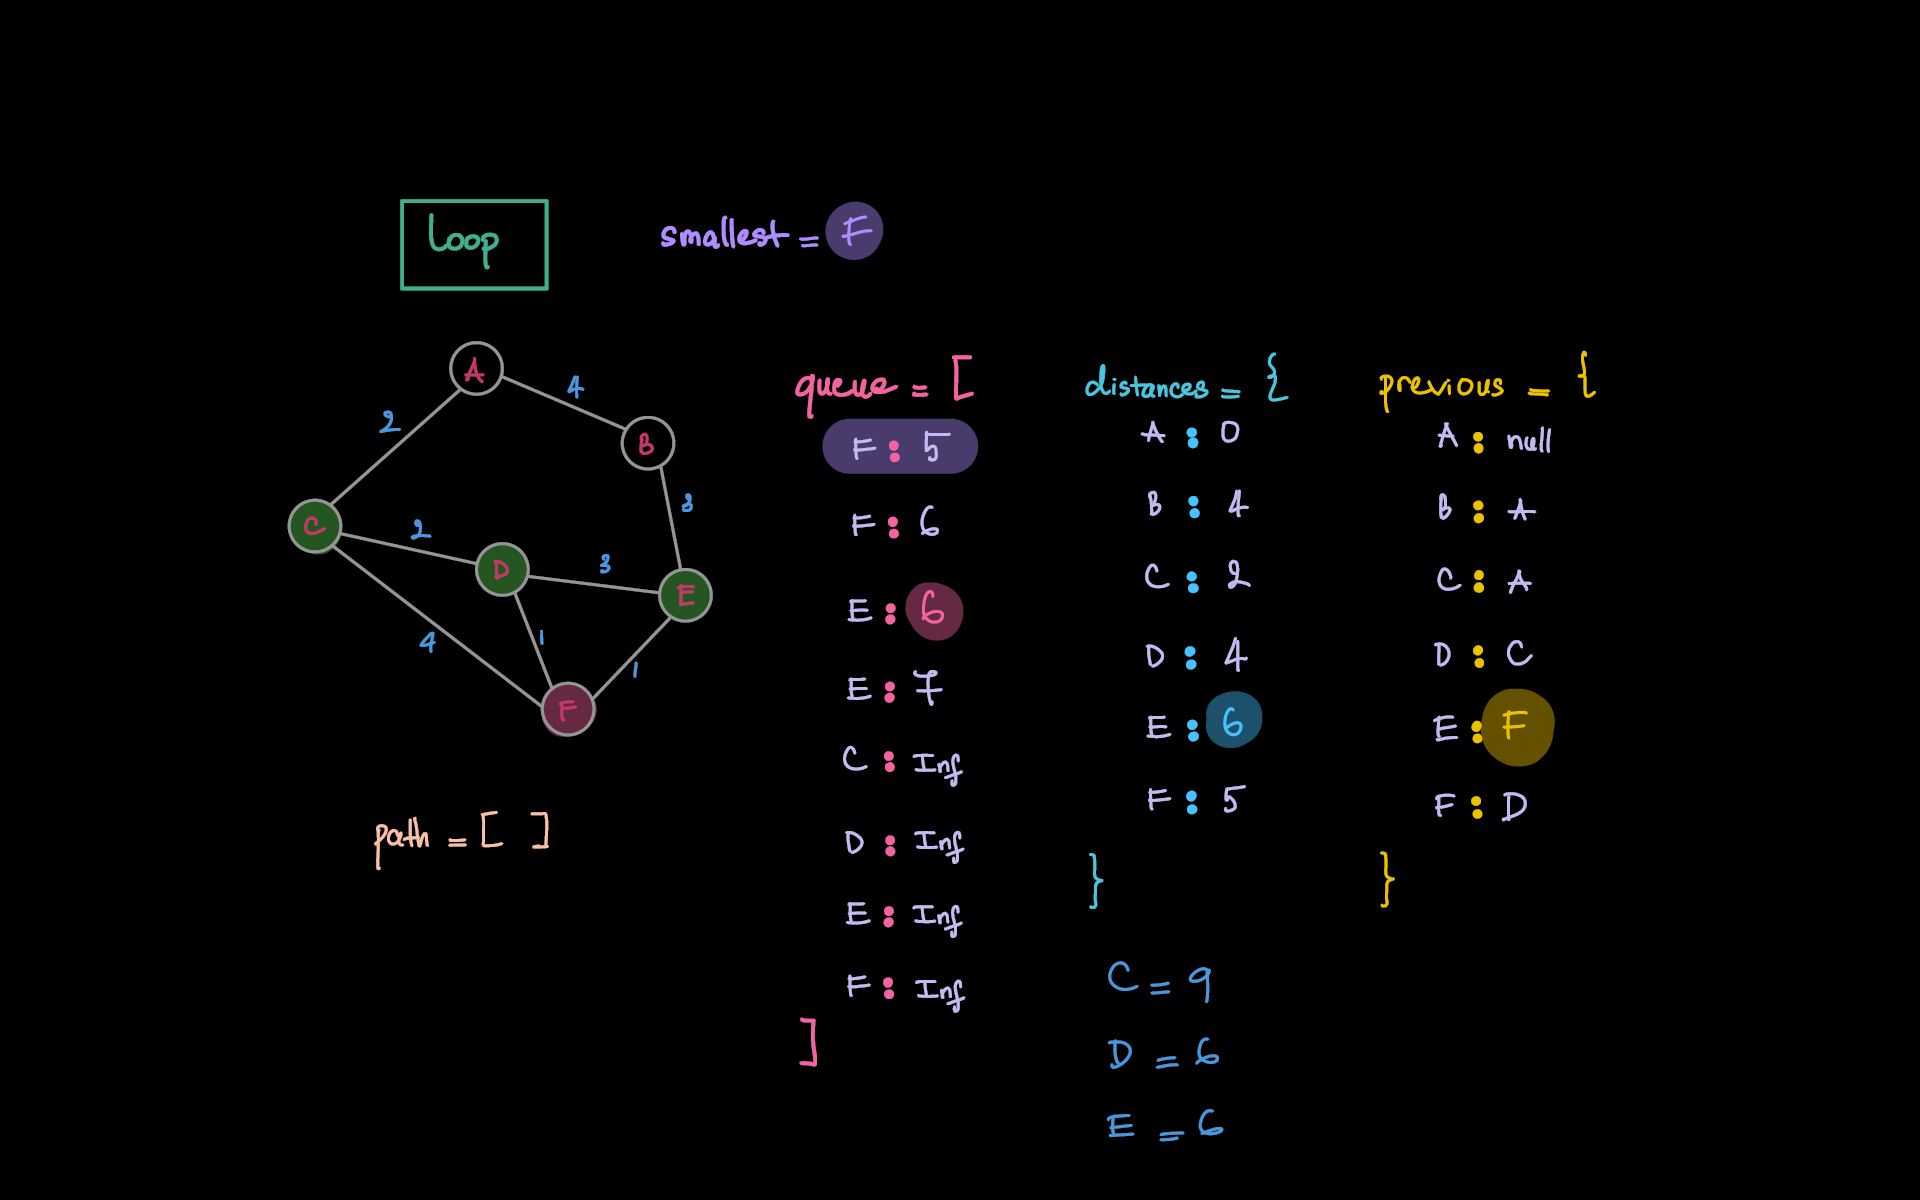 Loop
smallest = F
A
4
2
B
3
C
2
D
3
E
4
1
1
F
path = [ ]
queue = [
F : 5
F : 6
E : 6
E : 7
C : Inf
D : Inf
E : Inf
F : Inf
]
distances = {
A : 0
B : 4
C : 2
D : 4
E : 6
F : 5
}
C = 9
D = 6
E = 6
previous = {
A : null
B : A
C : A
D : C
E : F
F : D
}